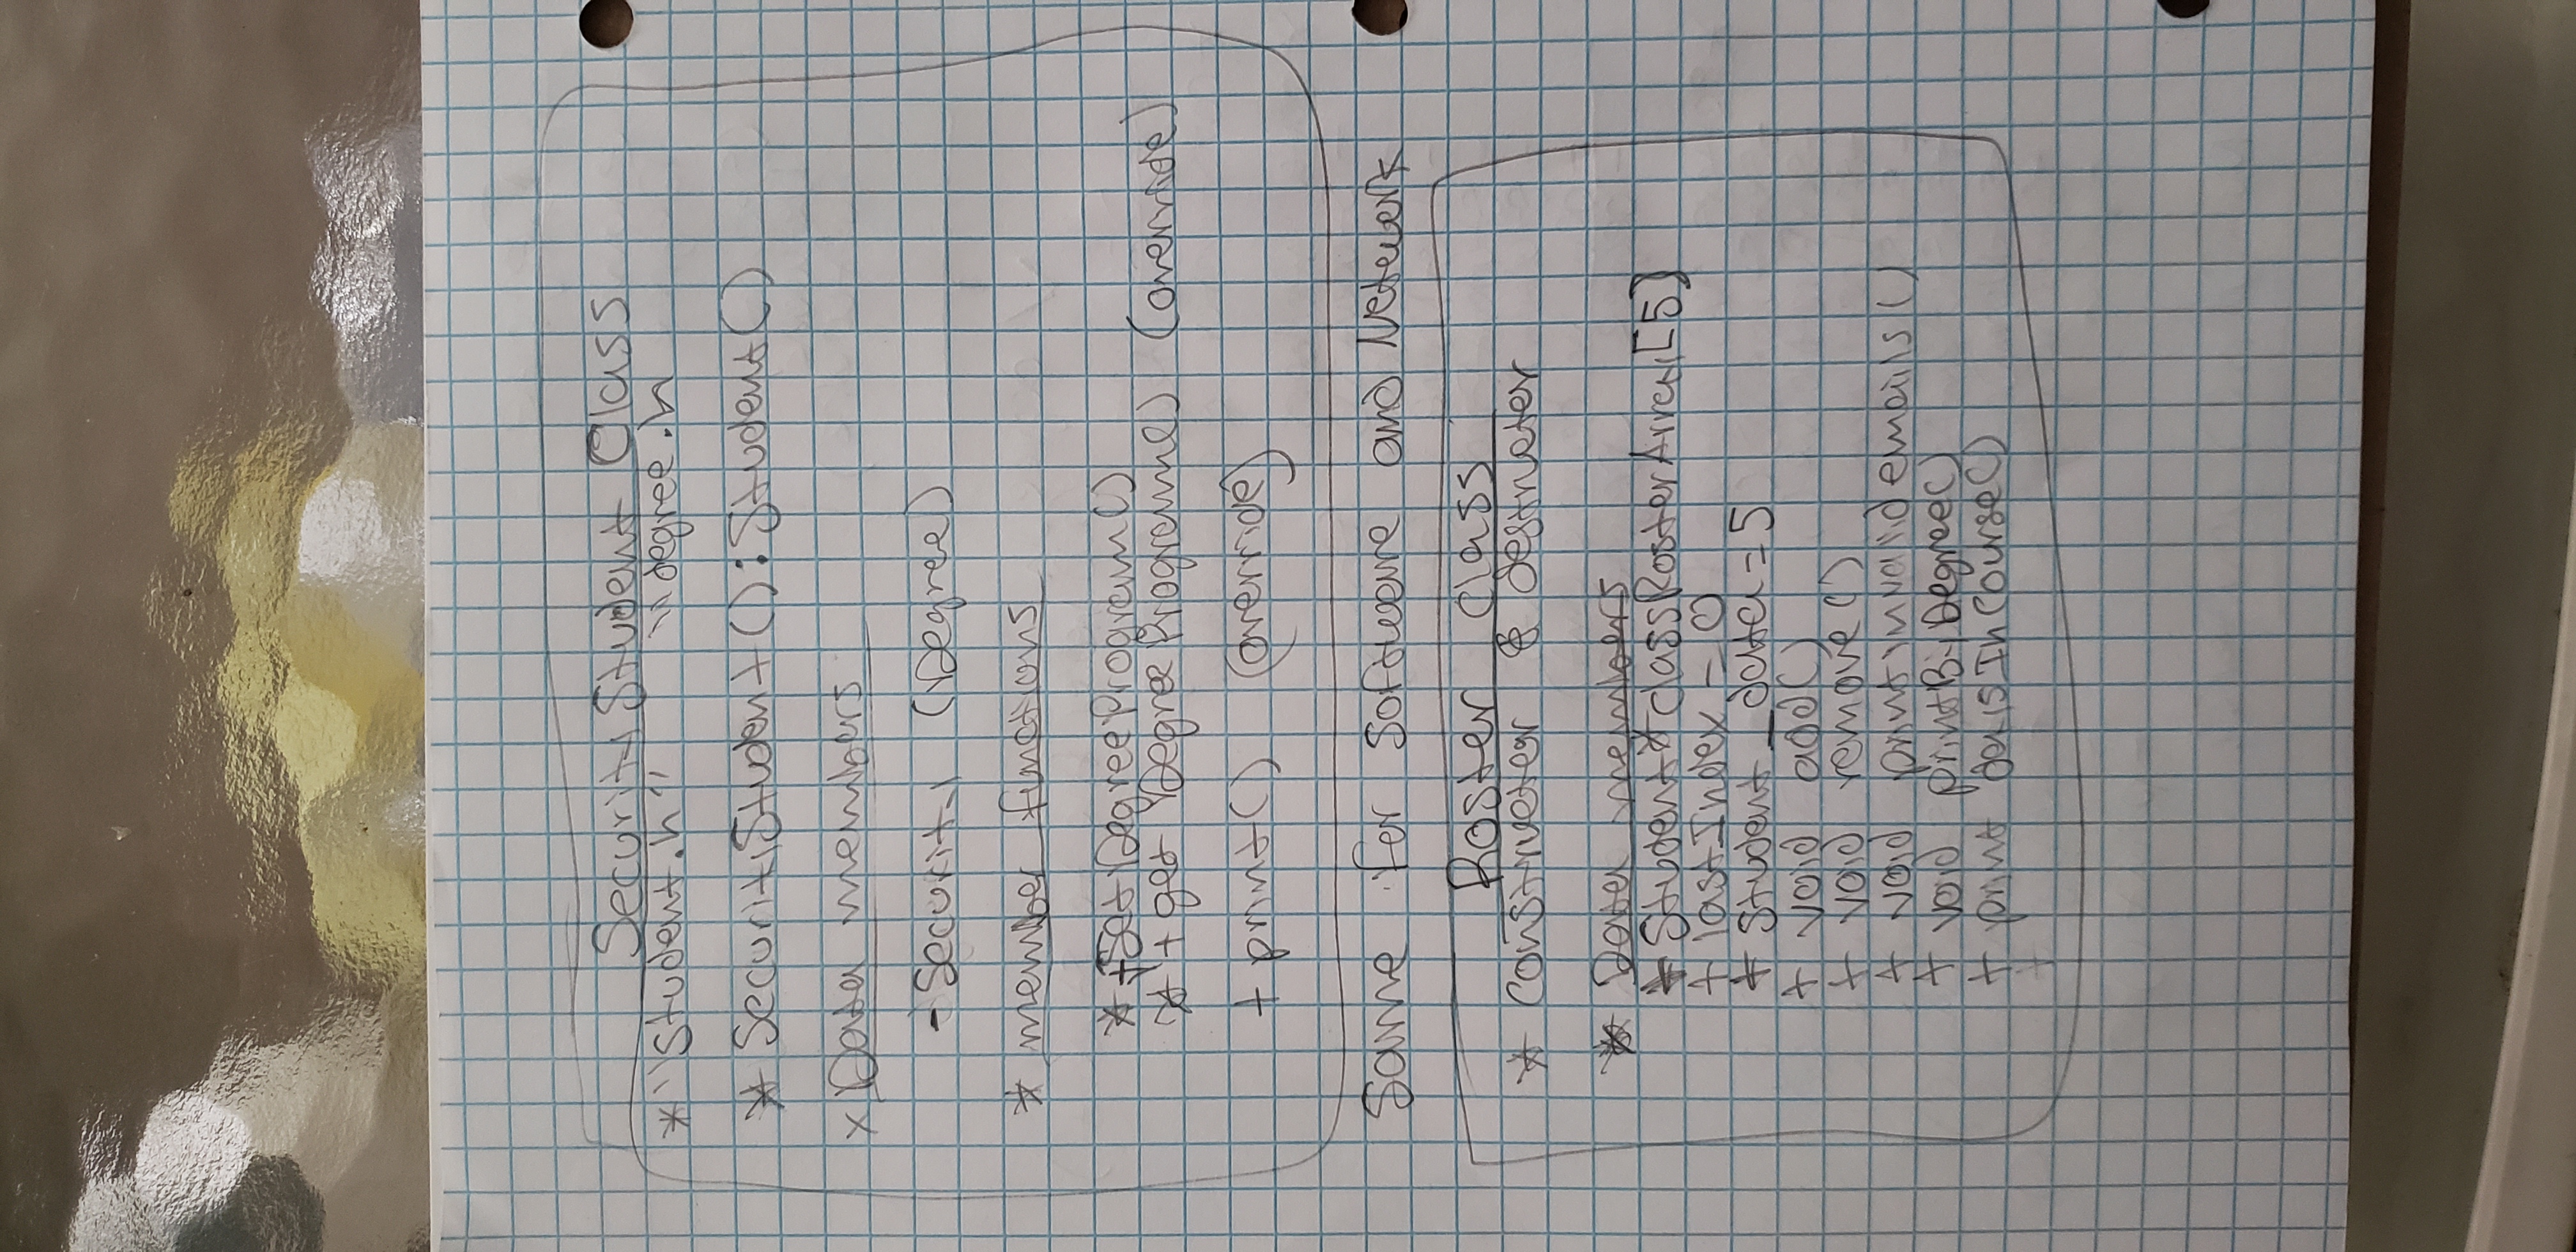 Security Student Class
* "Student.h" "degree.h
* SecurityStudent() : Student()
x Data members
- Security (Degree)
* member functions
* + Set DegreeProgram()
* + get DegreeProgram() (override)
+ print() (override)
Same for Software and Network
Roster class
* Constructor & destructor
* Data members
+ Student* classRosterArray[5]
+ lastIndex = 0
+ Student_data = 5
+ void add()
+ void remove()
+ void print invalid emails()
+ void printByDegree()
+ print daysInCourse()
+